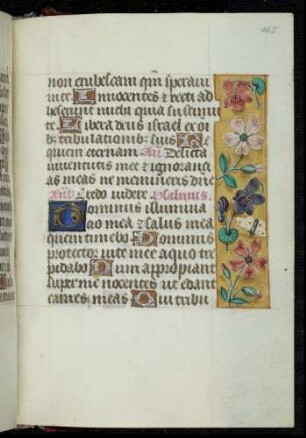 165
non erubescam qm̄ speraui
in te Innocentes & recti ad
heserunt michi quia sustinui
te Libera deus israel ex oi
bꝫ tribulationibꝫ suis Re
quiem eternam An̄ Delicta
iuuentutis mee & ignorancias
meas ne memineris dn̄e
An̄ Credo videre Psalmus
Dominus illumina
cio mea & salus mea
quem timebo Dominus
protector vite mee a quo tre
pidabo Dum appropiant
super me nocentes ut edant
carnes meas Qui tribu